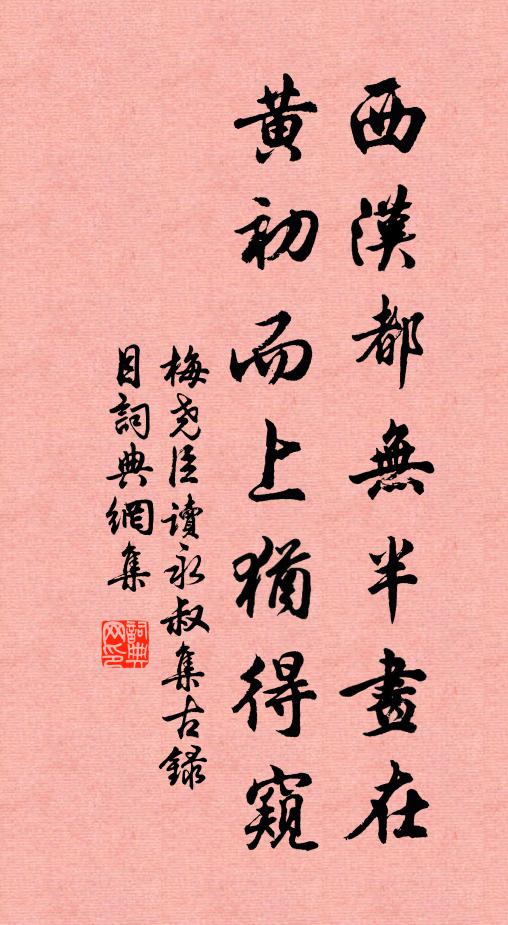 西漢都無半畫在
黃初而上猶得窺
梅堯臣讀永叔集古錄
目詞典網集
詞典網印